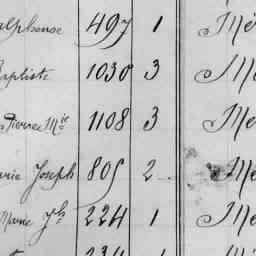 alphonse 497 1 Mé
Baptiste 1030 3 Me
Pierre Mie 1108 3 Me
arie Joseph 805 2 Me
Marie Jh 224 1 Me